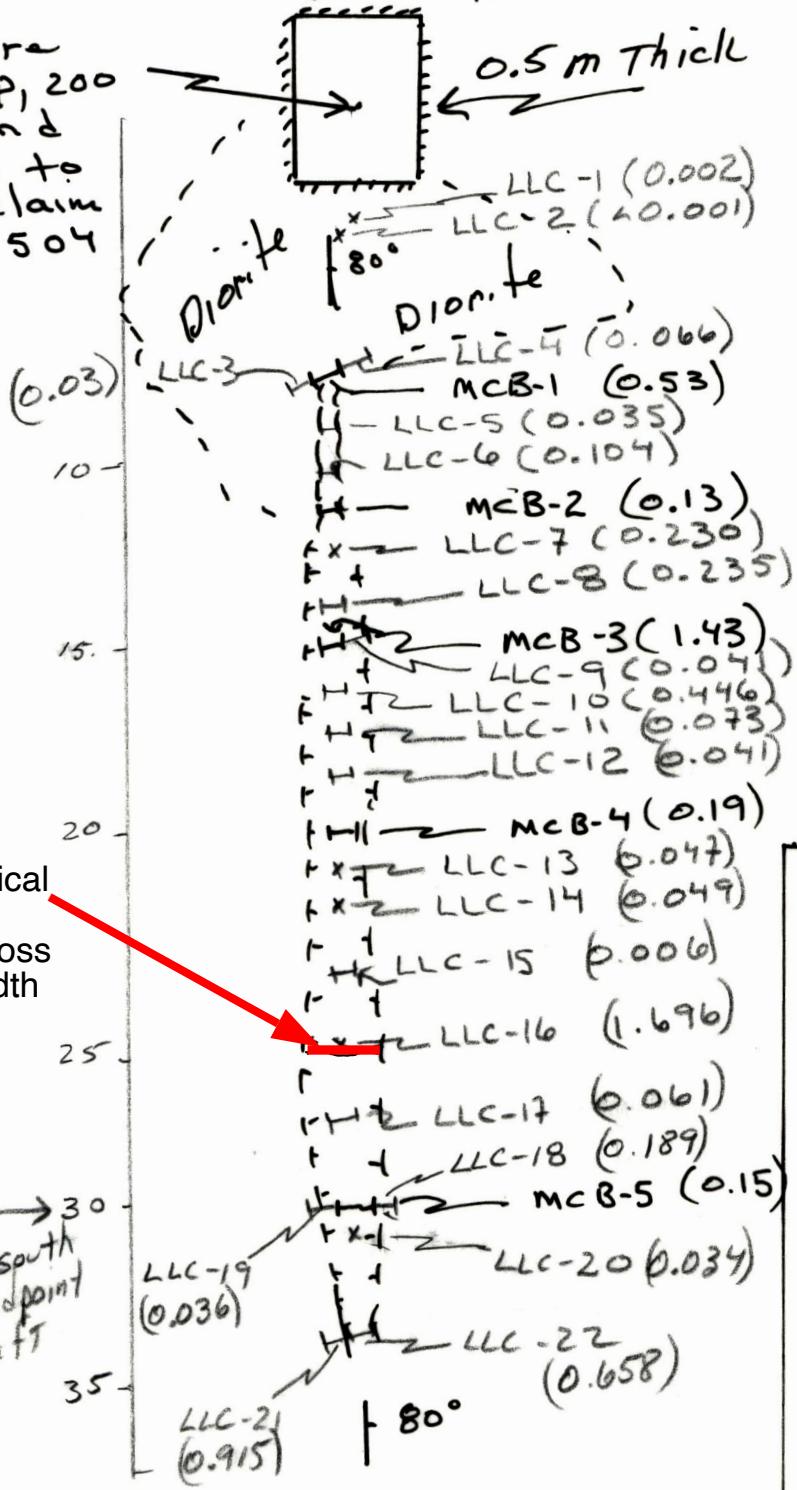 re
P, 200
nd
to
laim
504
0.5 m Thick
LLC-1 (0.002)
LLC-2 (<0.001)
80°
Diorite
Diorite
LLC-3
(0.03)
LLC-4 (0.066)
MCB-1 (0.53)
LLC-5 (0.035)
LLC-6 (0.104)
10
MCB-2 (0.13)
LLC-7 (0.230)
LLC-8 (0.235)
15.
MCB-3 (1.43)
LLC-9 (0.041)
LLC-10 (0.446)
LLC-11 (0.073)
LLC-12 (0.041)
20
MCB-4 (0.19)
LLC-13 (0.047)
LLC-14 (0.049)
ical
oss
dth
LLC-15 (0.006)
LLC-16 (1.696)
25
LLC-17 (0.061)
LLC-18 (0.189)
30
MCB-5 (0.15)
south
dpoint
ft
LLC-19
(0.036)
LLC-20 (0.034)
LLC-22
(0.658)
35
LLC-21
(0.915)
80°